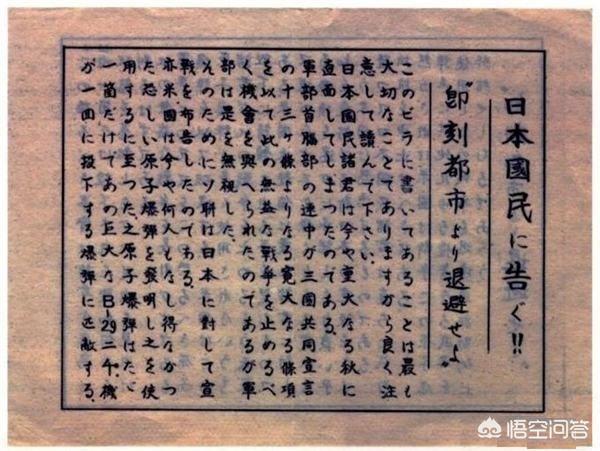 日本國民に告ぐ!!
"即刻都市より退避せよ"
このビラに書いてあることは最も
大切なことでありますから良く注
意して讀んで下さい。
日本國民諸君は今や重大なる秋に
直面してしまつたのである。
軍部首腦部の連中が三國共同宣言
の十三ヶ條よりなる寛大なる條項
を以て此の無益な戰爭を止めるべ
く機會を與へられたのであるが軍
部は是を無視した。
そのためにソ聯は日本に對して宣
戰を布告したのである。
亦米國は今や何人もなし得なかつ
た恐しい原子爆彈を發明し之を使
用するに至つた。之原子爆彈はたゞ
一箇だけであの巨大なB-29二千機
が一回に投下する爆彈に匹敵する。
悟空问答